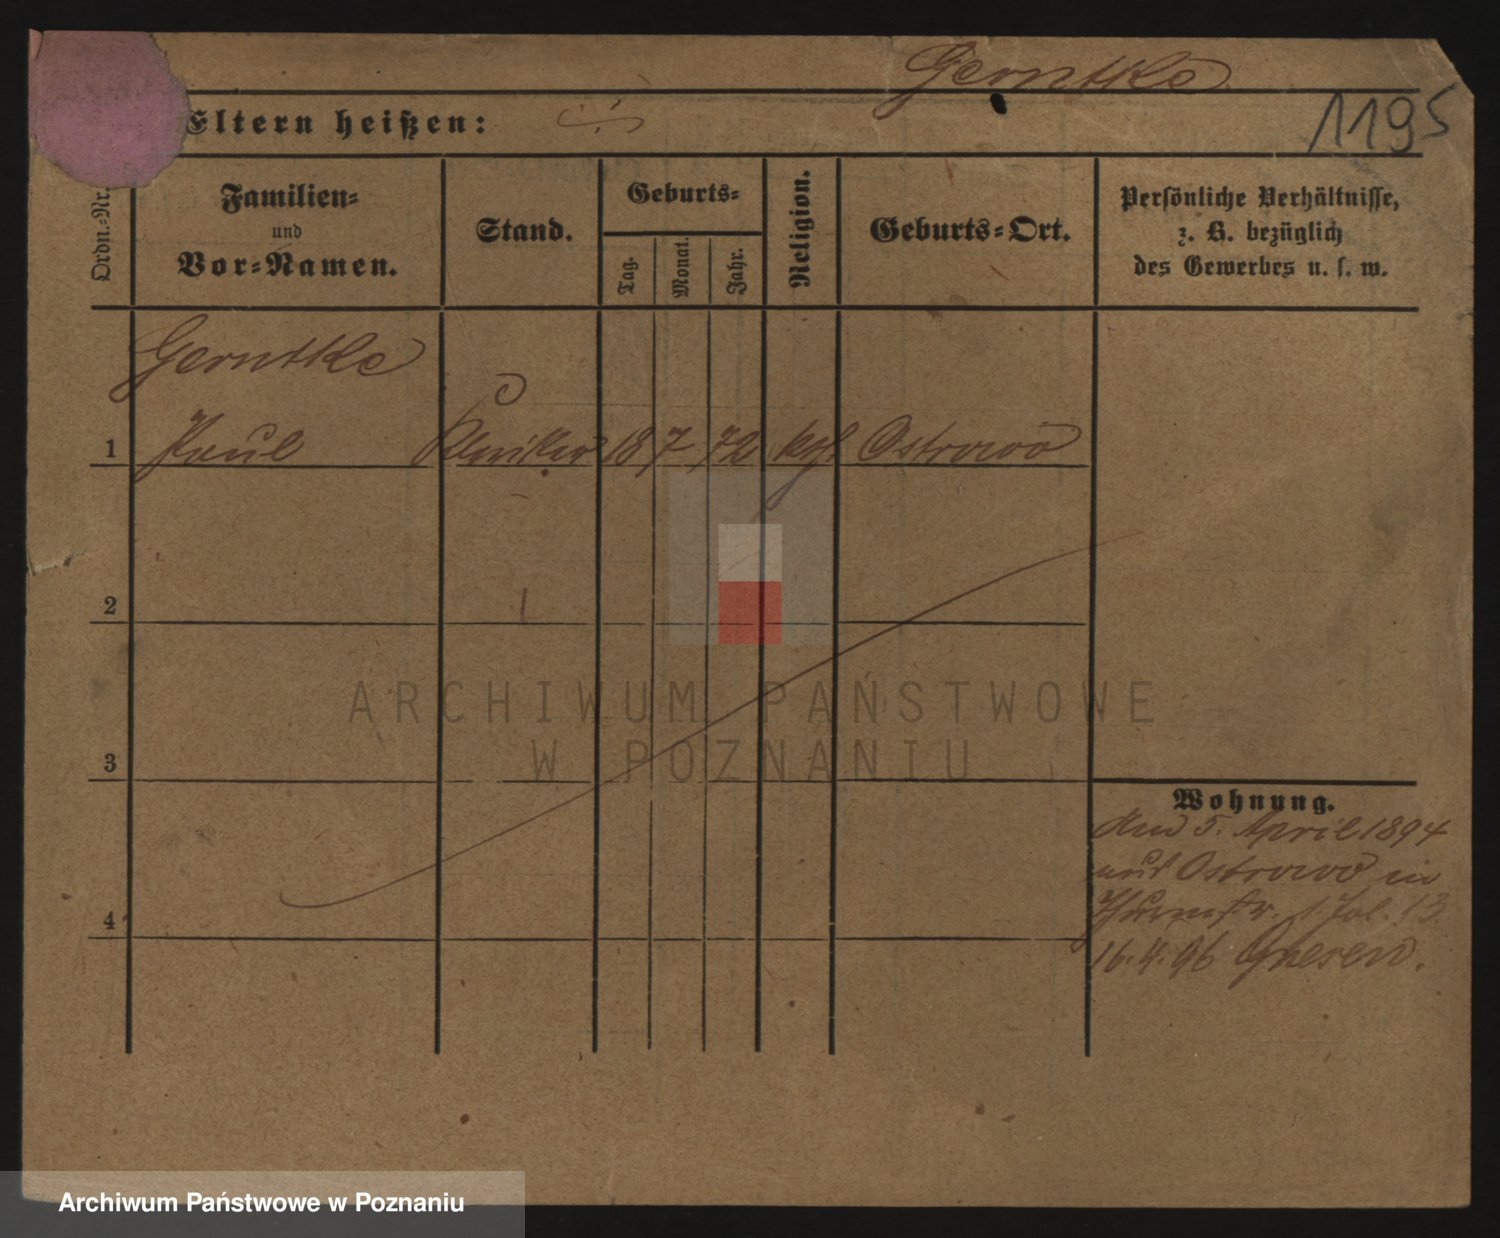 Gerntke
1195
Eltern heißen:
Ordn.-Nr.
Familien-
und
Vor-Namen.
Stand.
Geburts-
Tag.
Monat.
Jahr.
Religion.
Geburts-Ort.
Persönliche Verhältnisse,
z. B. bezüglich
des Gewerbes u. s. w.
Gerntke
1 Paul 18 7 72 kgl. Ostrowo
2
3
4
Wohnung.
den 5. April 1894
aus Ostrowo in
Thurmstr. 1 Fol. 13
16.4.96 Gnesen.
ARCHIWUM PAŃSTWOWE
W POZNANIU
Archiwum Państwowe w Poznaniu